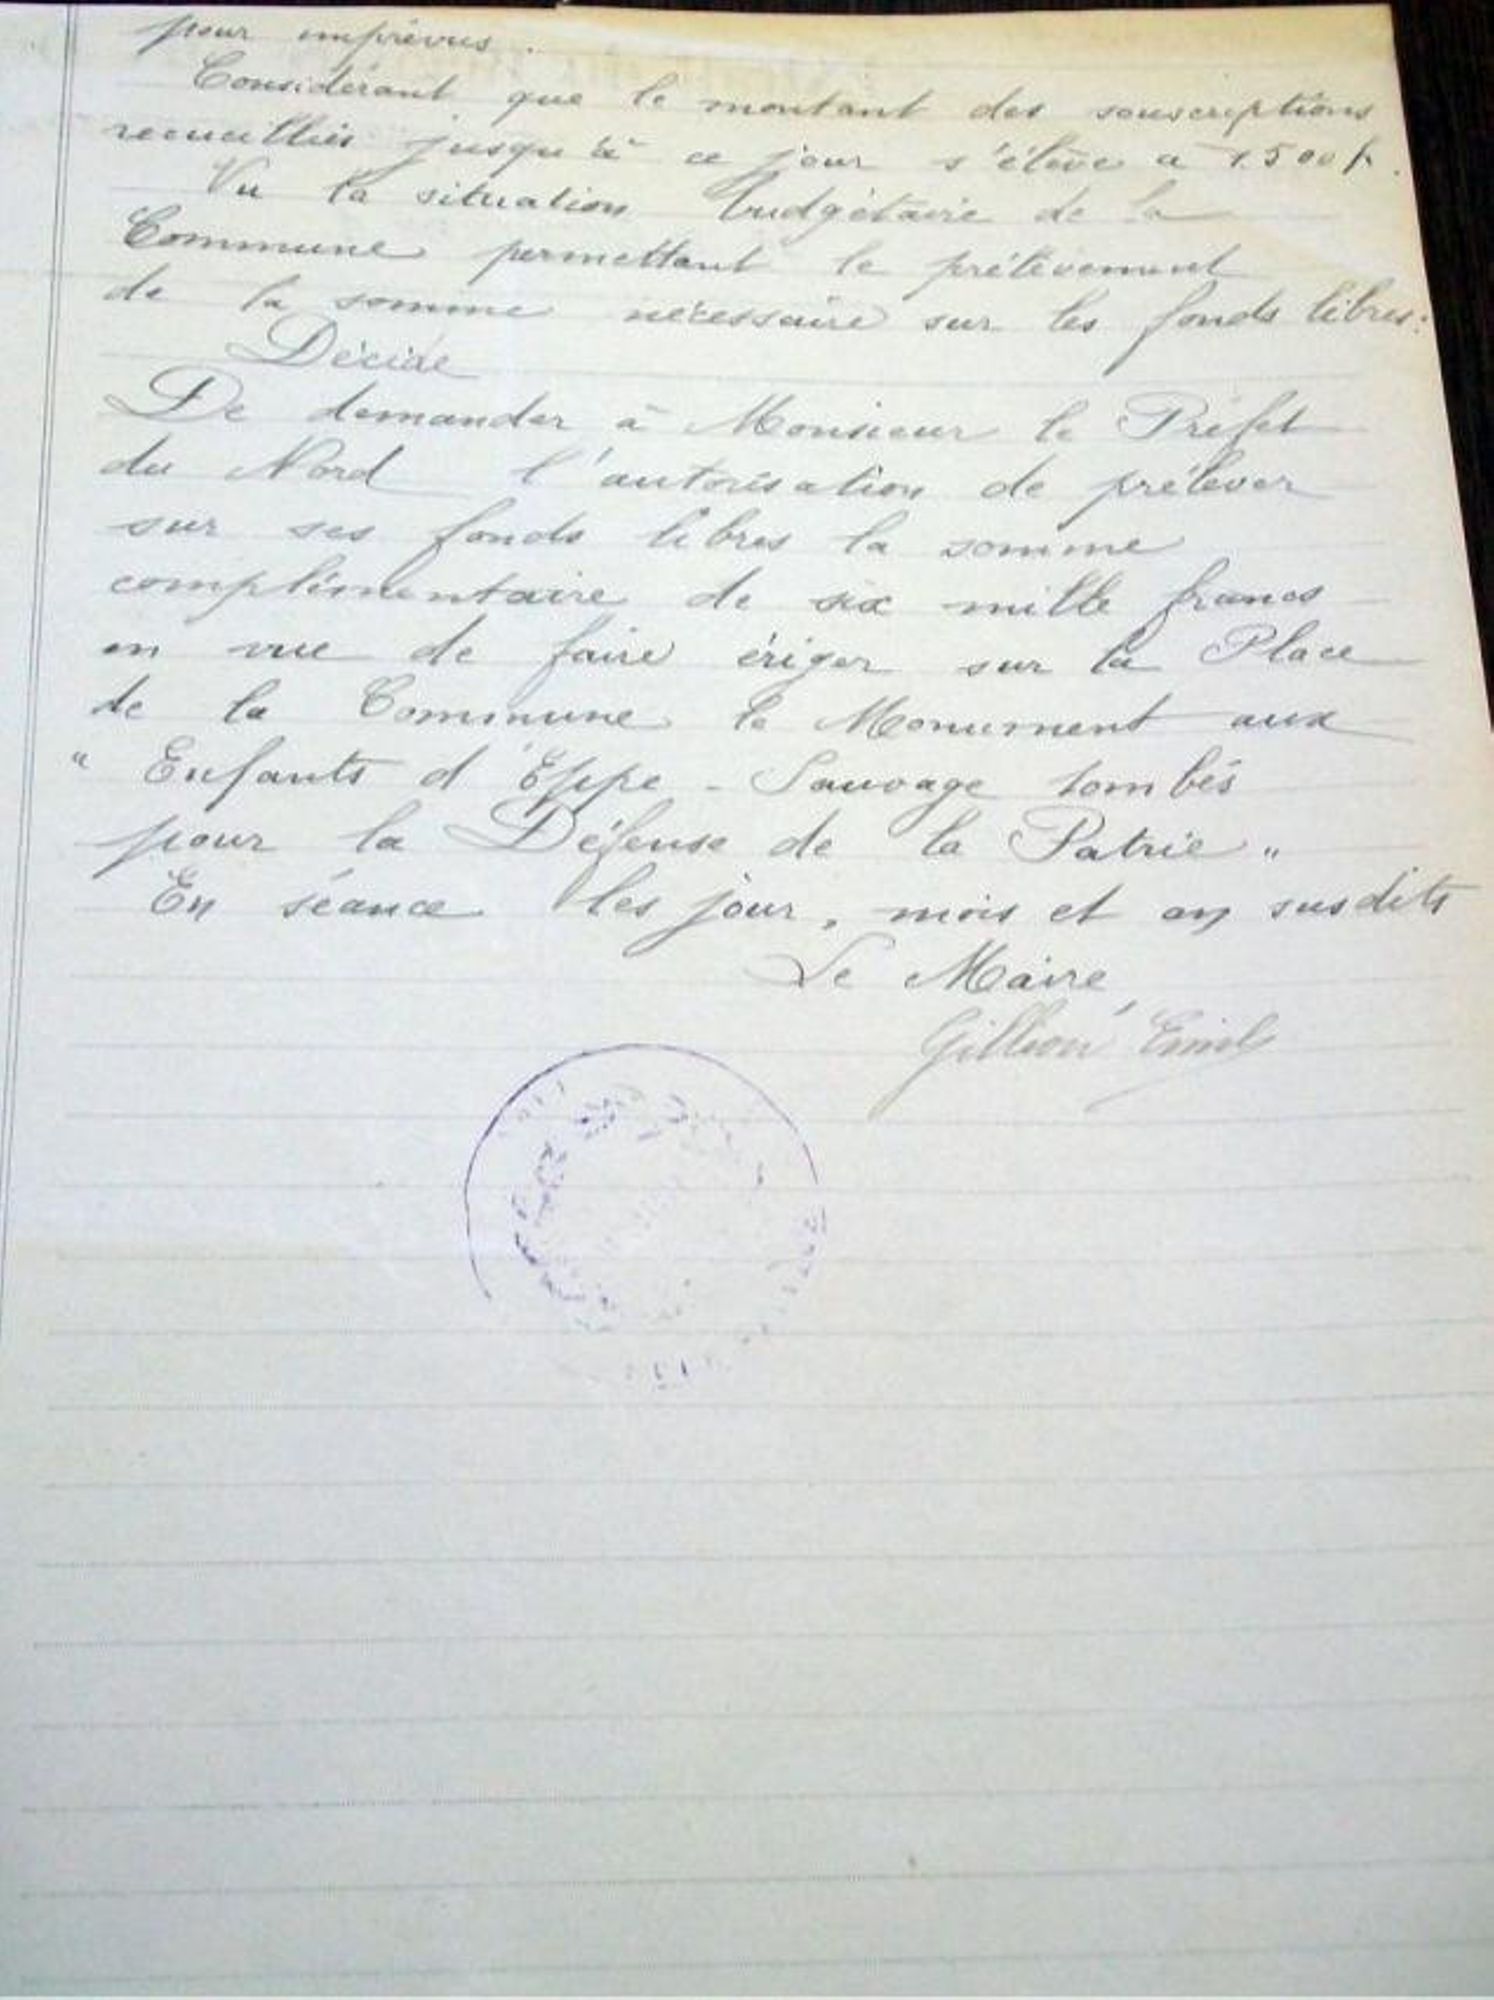 pour imprévus.
Considérant que le montant des souscriptions
recueillies jusqu'à ce jour s'élève à 1.500 f.
Vu la situation budgétaire de la
Commune permettant le prélèvement
de la somme nécessaire sur les fonds libres :
Décide
De demander à Monsieur le Préfet
du Nord l'autorisation de prélever
sur ses fonds libres la somme
complémentaire de six mille francs
en vue de faire ériger sur la Place
de la Commune le Monument aux
" Enfants d'Eppe-Sauvage tombés
pour la Défense de la Patrie "
En séance les jour, mois et an susdits
Le Maire,
Emile